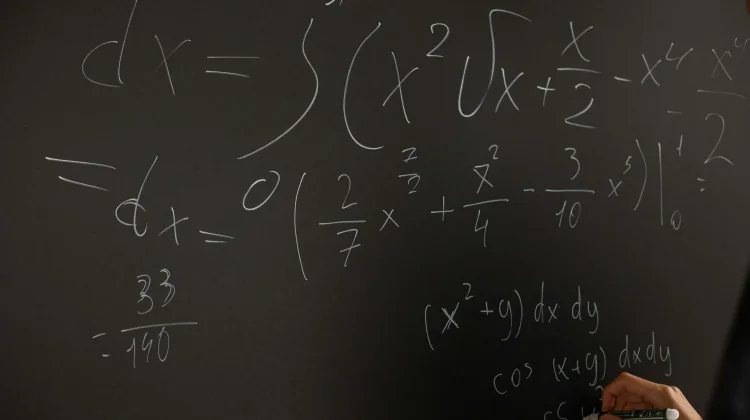 dx = ∫ ( x² √x + x/2 - x⁴ - x⁴/2
= dx = 0 ( 2/7 x^7/2 + x²/4 - 3/10 x⁵ ) |₀¹ =
= 33/140
(x² + y) dx dy
cos (x+y) dxdy